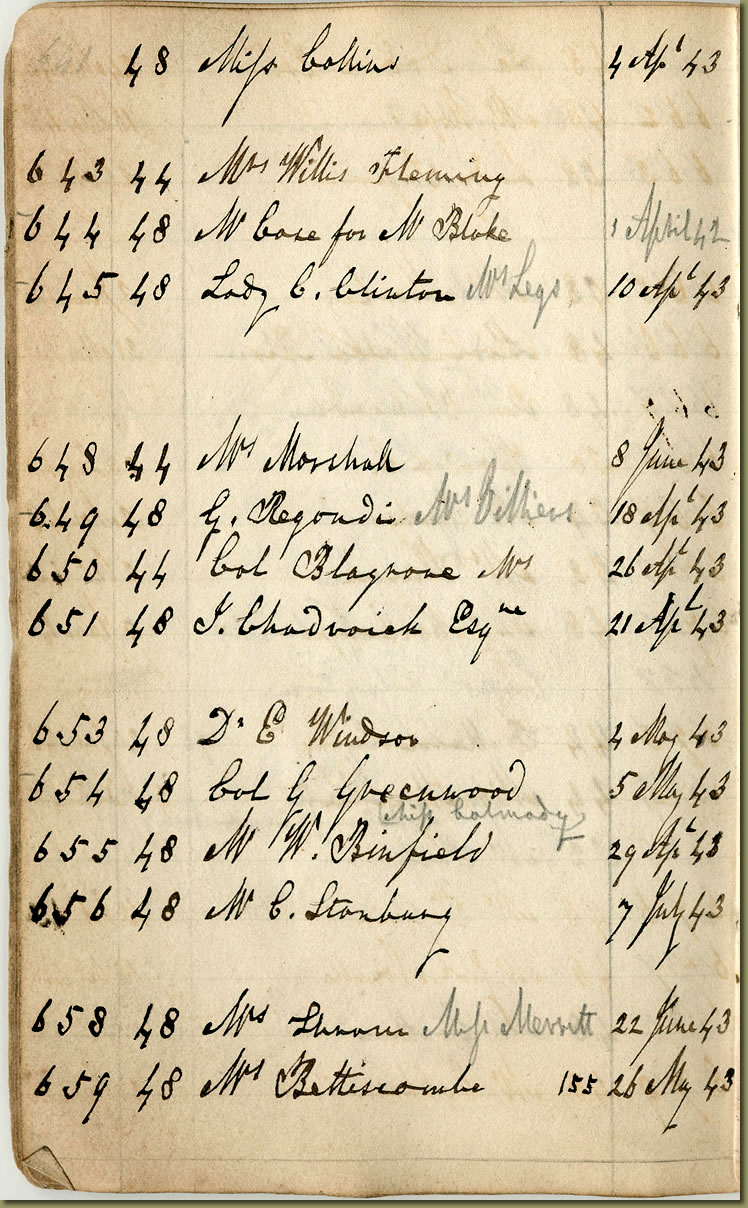 48 Miss Collins 4 Apl 43
643 44 Mrs Willis Fleming
644 48 Mr Case for Mr Blake 1 April 42
645 48 Lady C. Clinton Mrs Legs 10 Apl 43
648 44 Mrs Marshall 8 June 43
649 48 G. Regondi Mrs Villiers 18 Apl 43
650 44 Col Blagrove Mrs 26 Apl 43
651 48 J. Chadwick Esqre 21 Apl 43
653 48 Dr E Windsor 4 May 43
654 48 Col G Greenwood 5 May 43
Miss Calmady
655 48 Mr W. Binfield 29 Apl 43
656 48 Mr C. Stanbury 7 July 43
658 48 Mrs Miss Merritt 22 June 43
659 48 Mrs Bettiscombe 155 26 May 43